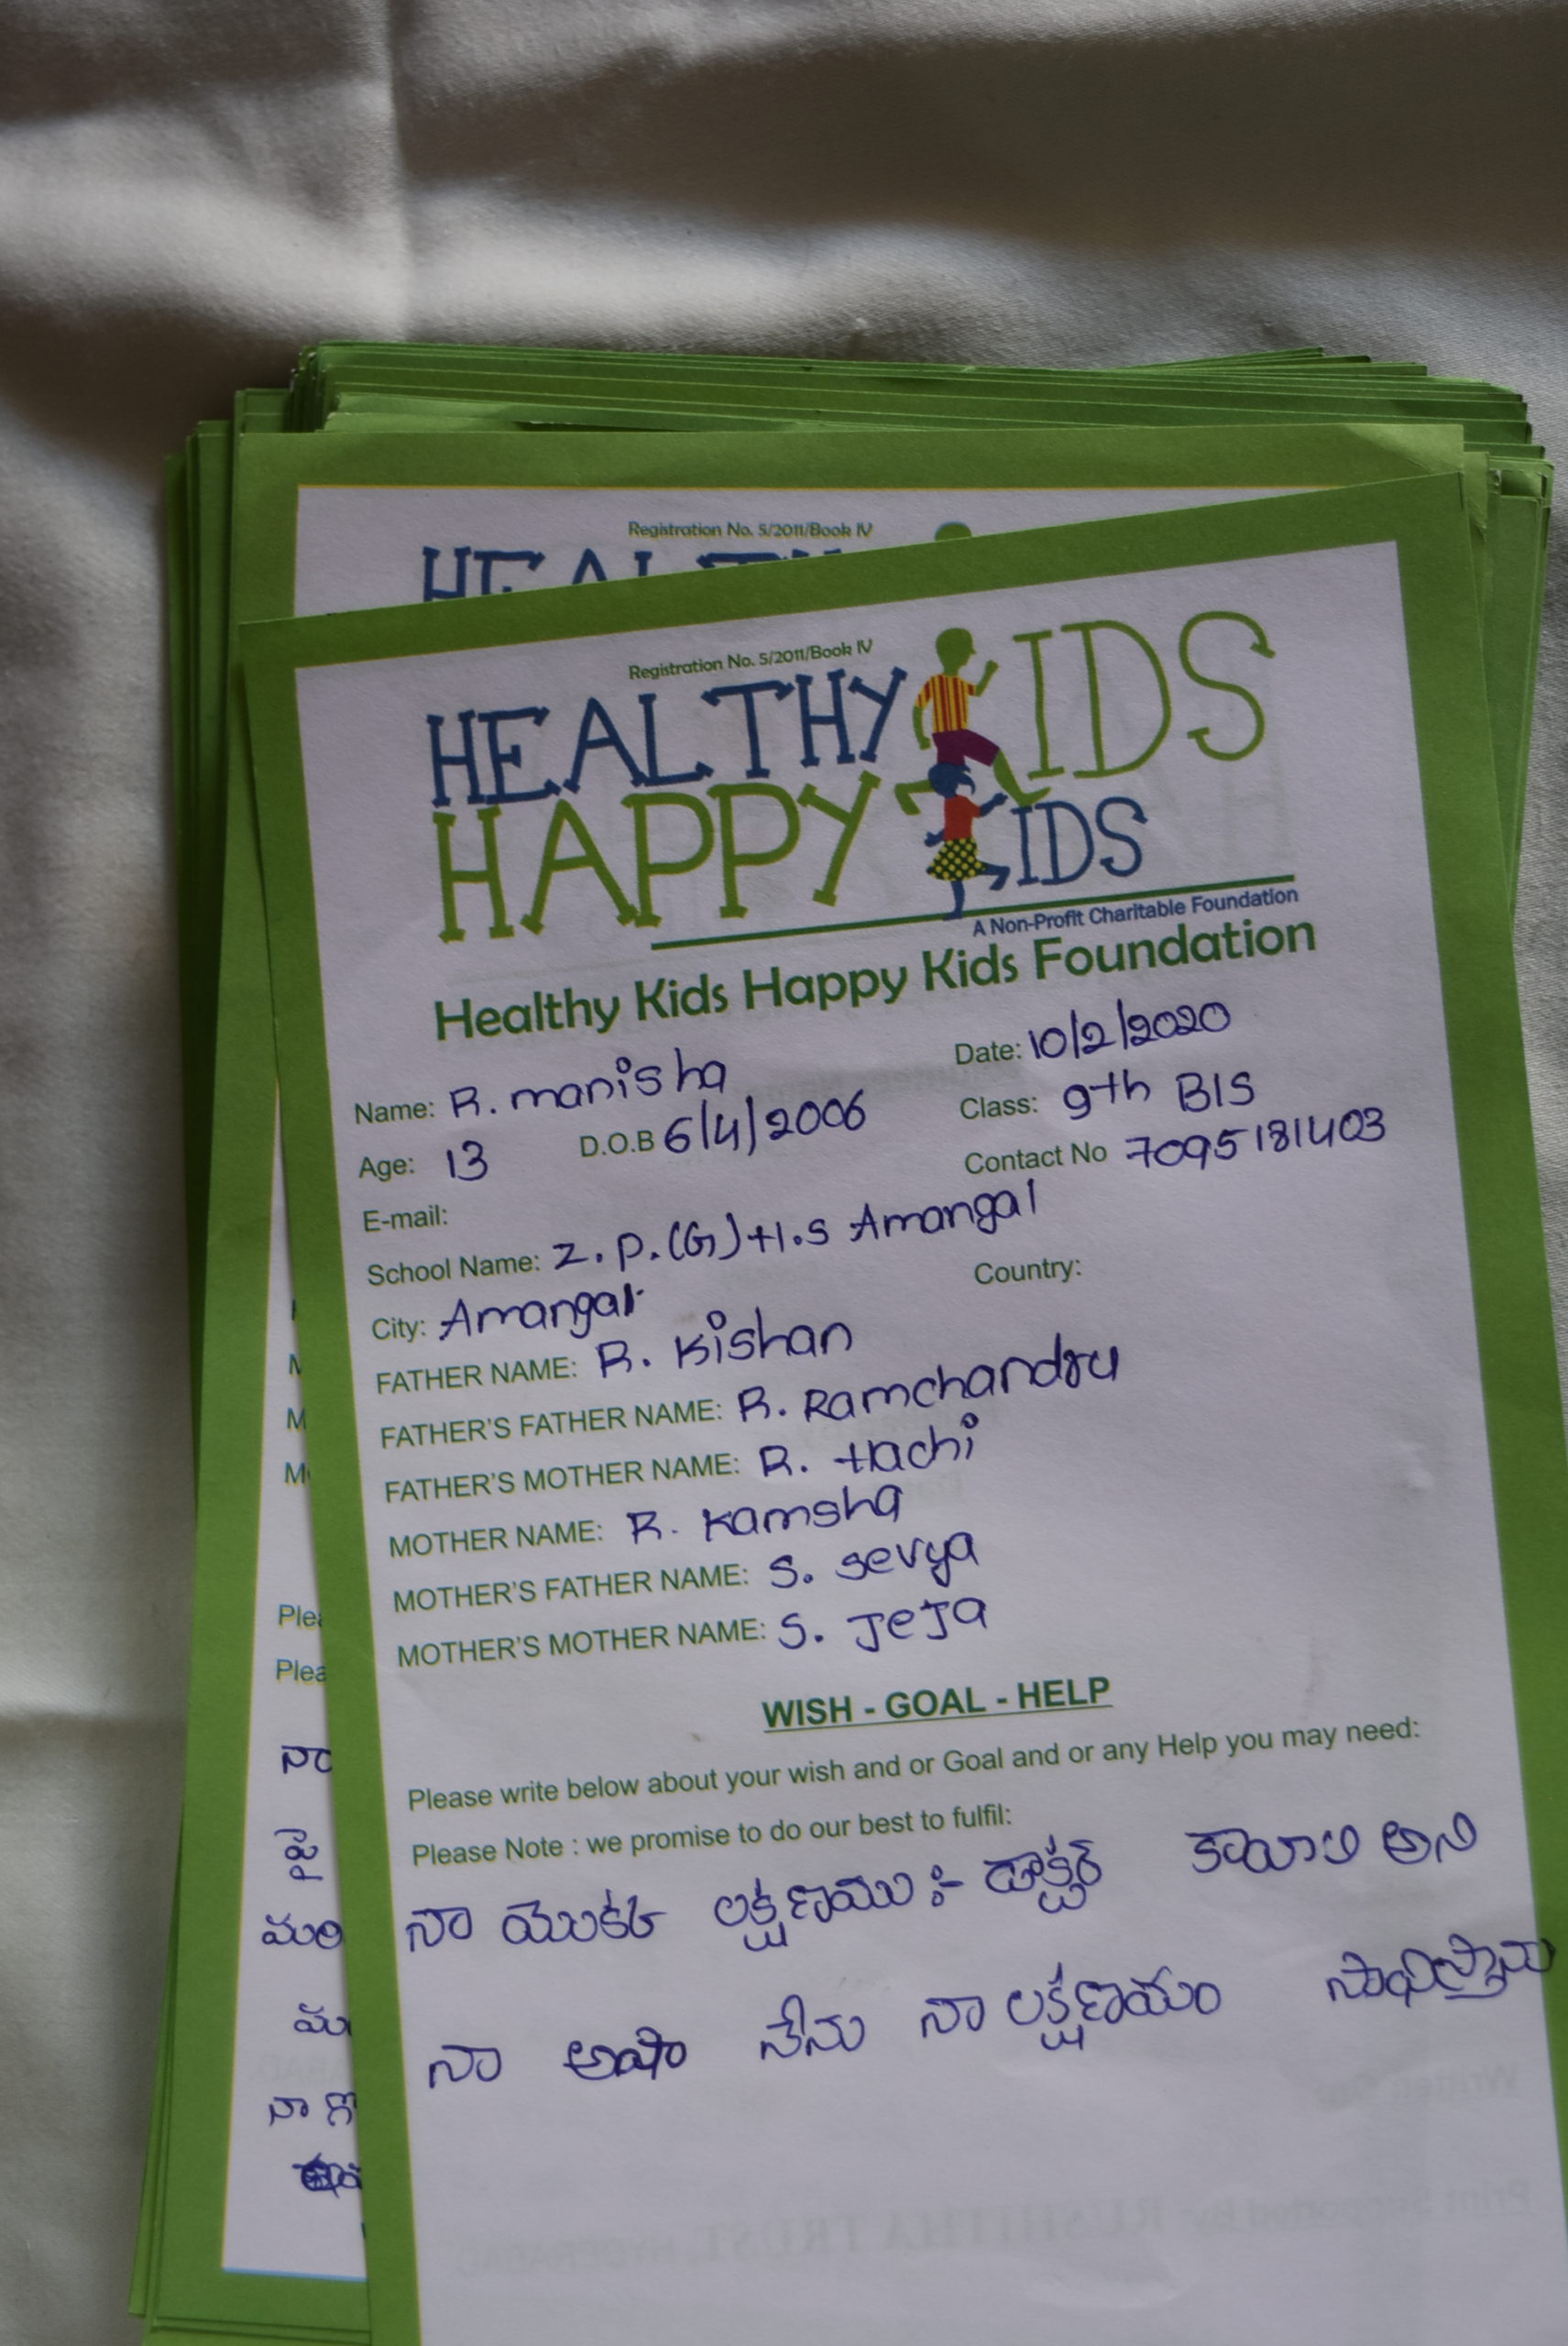 Registration No. 5/2011/Book IV
Registration No. 5/2011/Book IV
HEALTHY KIDS
HAPPY KIDS
A Non-Profit Charitable Foundation
Healthy Kids Happy Kids Foundation
Name: R. manisha Date: 10/2/2020
Age: 13 D.O.B 6/4/2006 Class: 9th BIS
E-mail: Contact No 7095181403
School Name: Z. P. (G) H.S Amangal
City: Amangal Country:
FATHER NAME: R. Kishan
FATHER'S FATHER NAME: R. Ramchandru
FATHER'S MOTHER NAME: R. Hachi
MOTHER NAME: R. Kamsha
MOTHER'S FATHER NAME: S. Sevya
MOTHER'S MOTHER NAME: S. JeJa
WISH - GOAL - HELP
Please write below about your wish and or Goal and or any Help you may need:
Please Note : we promise to do our best to fulfil:
నా యొకక లక్ష్ణము :- డాక్టర్ కావాలి అని
నా ఆషా నేను నా లక్ష్ణాయం సాధిస్తాను